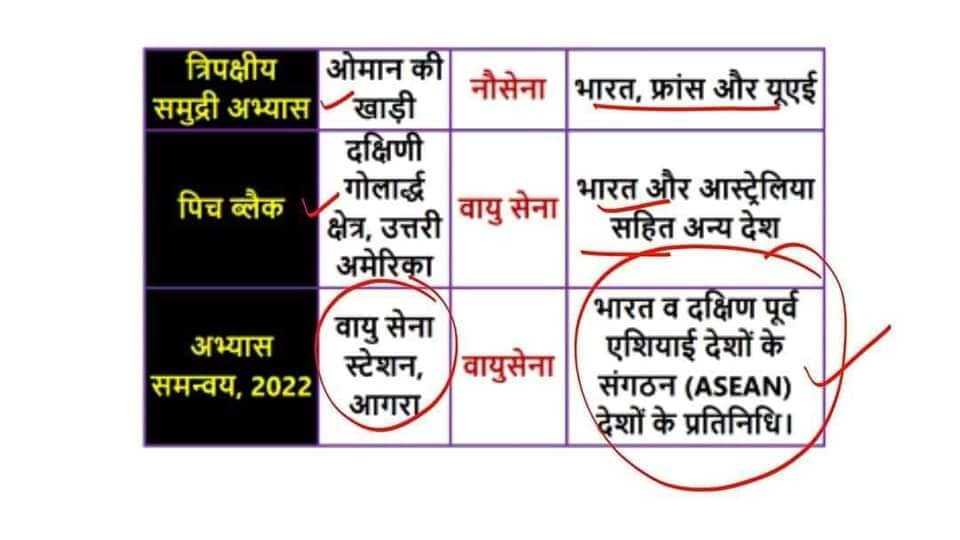 त्रिपक्षीय
समुद्री अभ्यास
ओमान की
खाड़ी
नौसेना
भारत, फ्रांस और यूएई
पिच ब्लैक
दक्षिणी
गोलार्द्ध
क्षेत्र, उत्तरी
अमेरिका
वायु सेना
भारत और आस्ट्रेलिया
सहित अन्य देश
अभ्यास
समन्वय, 2022
वायु सेना
स्टेशन,
आगरा
वायुसेना
भारत व दक्षिण पूर्व
एशियाई देशों के
संगठन (ASEAN)
देशों के प्रतिनिधि।